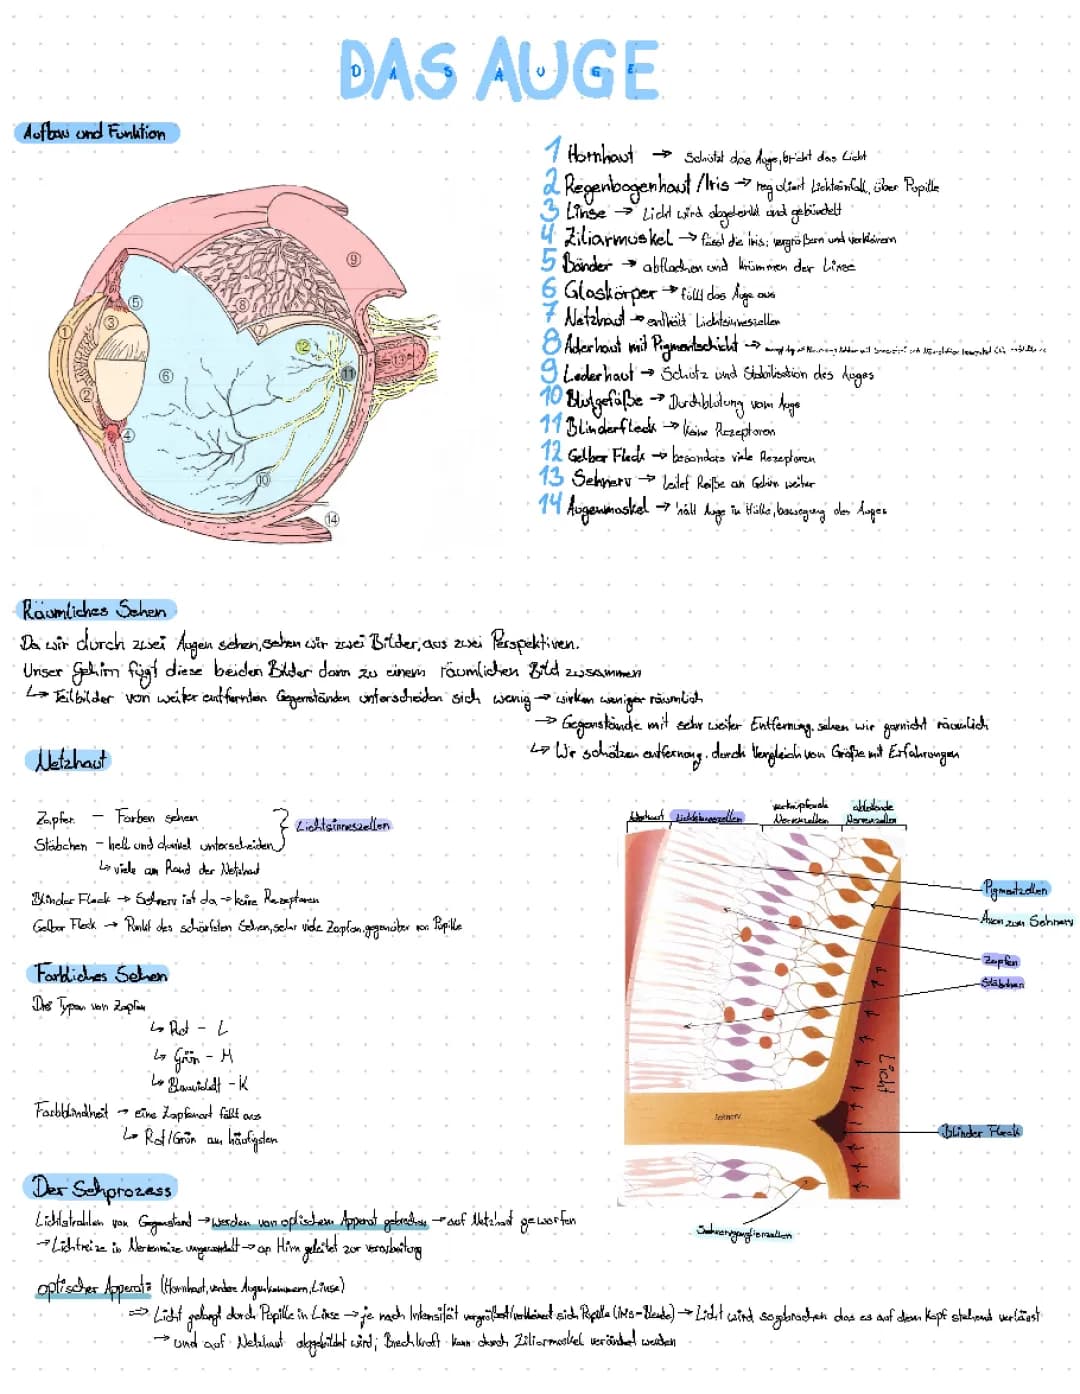 DAS AUGE
D A S A U G E
Aufbau und Funktion
1 Hornhaut → schützt das Auge, bricht das Licht
2 Regenbogenhaut / Iris → reguliert Lichteinfall, über Pupille
3 Linse → Licht wird abgelenkt und gebündelt
4 Ziliarmuskel → fässt die Iris; vergrößern und verkleinern
5 Bänder → abflachen und krümmen der Linse
6 Glaskörper → füllt das Auge aus
7 Netzhaut → enthält Lichtsinneszellen
8 Aderhaut mit Pigmentschicht →
9 Lederhaut → Schutz und Stabilisation des Auges
10 Blutgefäße → Durchblutung vom Auge
11 Blinderfleck → keine Rezeptoren
12 Gelber Fleck → besonders viele Rezeptoren
13 Sehnerv → leitet Reize an Gehirn weiter
14 Augenmuskel → hält Auge in Hülle, bewegung des Auges
1
2
3
4
5
6
7
8
9
10
11
12
13
14
Räumliches Sehen
Da wir durch zwei Augen sehen, sehen wir zwei Bilder, aus zwei Perspektiven.
Unser Gehirn fügt diese beiden Bilder dann zu einem räumlichen Bild zusammen
↳ Teilbilder von weiter entfernten Gegenständen unterscheiden sich wenig → wirken weniger räumlich
→ Gegenstände mit sehr weiter Entfernung, sehen wir garnicht räumlich
↳ Wir schätzen entfernung, durch Vergleich von Größe mit Erfahrungen
Netzhaut
Zapfen – Farben sehen
Stäbchen – hell und dunkel unterscheiden
Lichtsinneszellen
↳ viele am Rand der Netzhaut
Blinder Fleck → Sehnerv ist da → keine Rezeptoren
Gelber Fleck → Punkt des schärfsten Sehen, sehr viele Zapfen, gegenüber von Pupille
Aderhaut
Lichtsinneszellen
verknüpfende Nervenzellen
ableitende Nervenzellen
Pigmentzellen
Axon zum Sehnerv
Zapfen
Stäbchen
Licht
Sehnerv
Blinder Fleck
Sehnervganglienzellen
Farbliches Sehen
Drei Typen von Zapfen
↳ Rot – L
↳ Grün – M
↳ Blauviolett – K
Farbblindheit → eine Zapfenart fällt aus
↳ Rot/Grün am häufigsten
Der Sehprozess
Lichtstrahlen von Gegenstand → werden von optischem Apparat gebrochen → auf Netzhaut geworfen
→ Lichtreize in Nervenreize umgewandelt → an Hirn geleitet zur verarbeitung
optischer Apparat: (Hornhaut, vordere Augenkammern, Linse)
⇒ Licht gelangt durch Pupille in Linse → je nach Intensität vergrößert/verkleinert sich Pupille (Iris-Blende) → Licht wird so gebrochen das es auf dem Kopf stehend verlässt
→ und auf Netzhaut abgebildet wird; Brechkraft kann durch Ziliarmuskel verändert werden